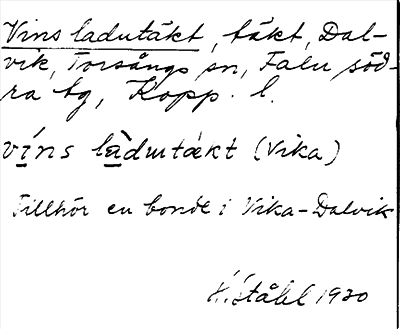 Vins ladutäkt, täkt, Dal-
vik, Torsångs sn, Falu söd-
ra tg, Kopp. l.
víns làdutäkt (Vika)
Tillhör en bonde i Vika-Dalvik
H. Ståhl 1930